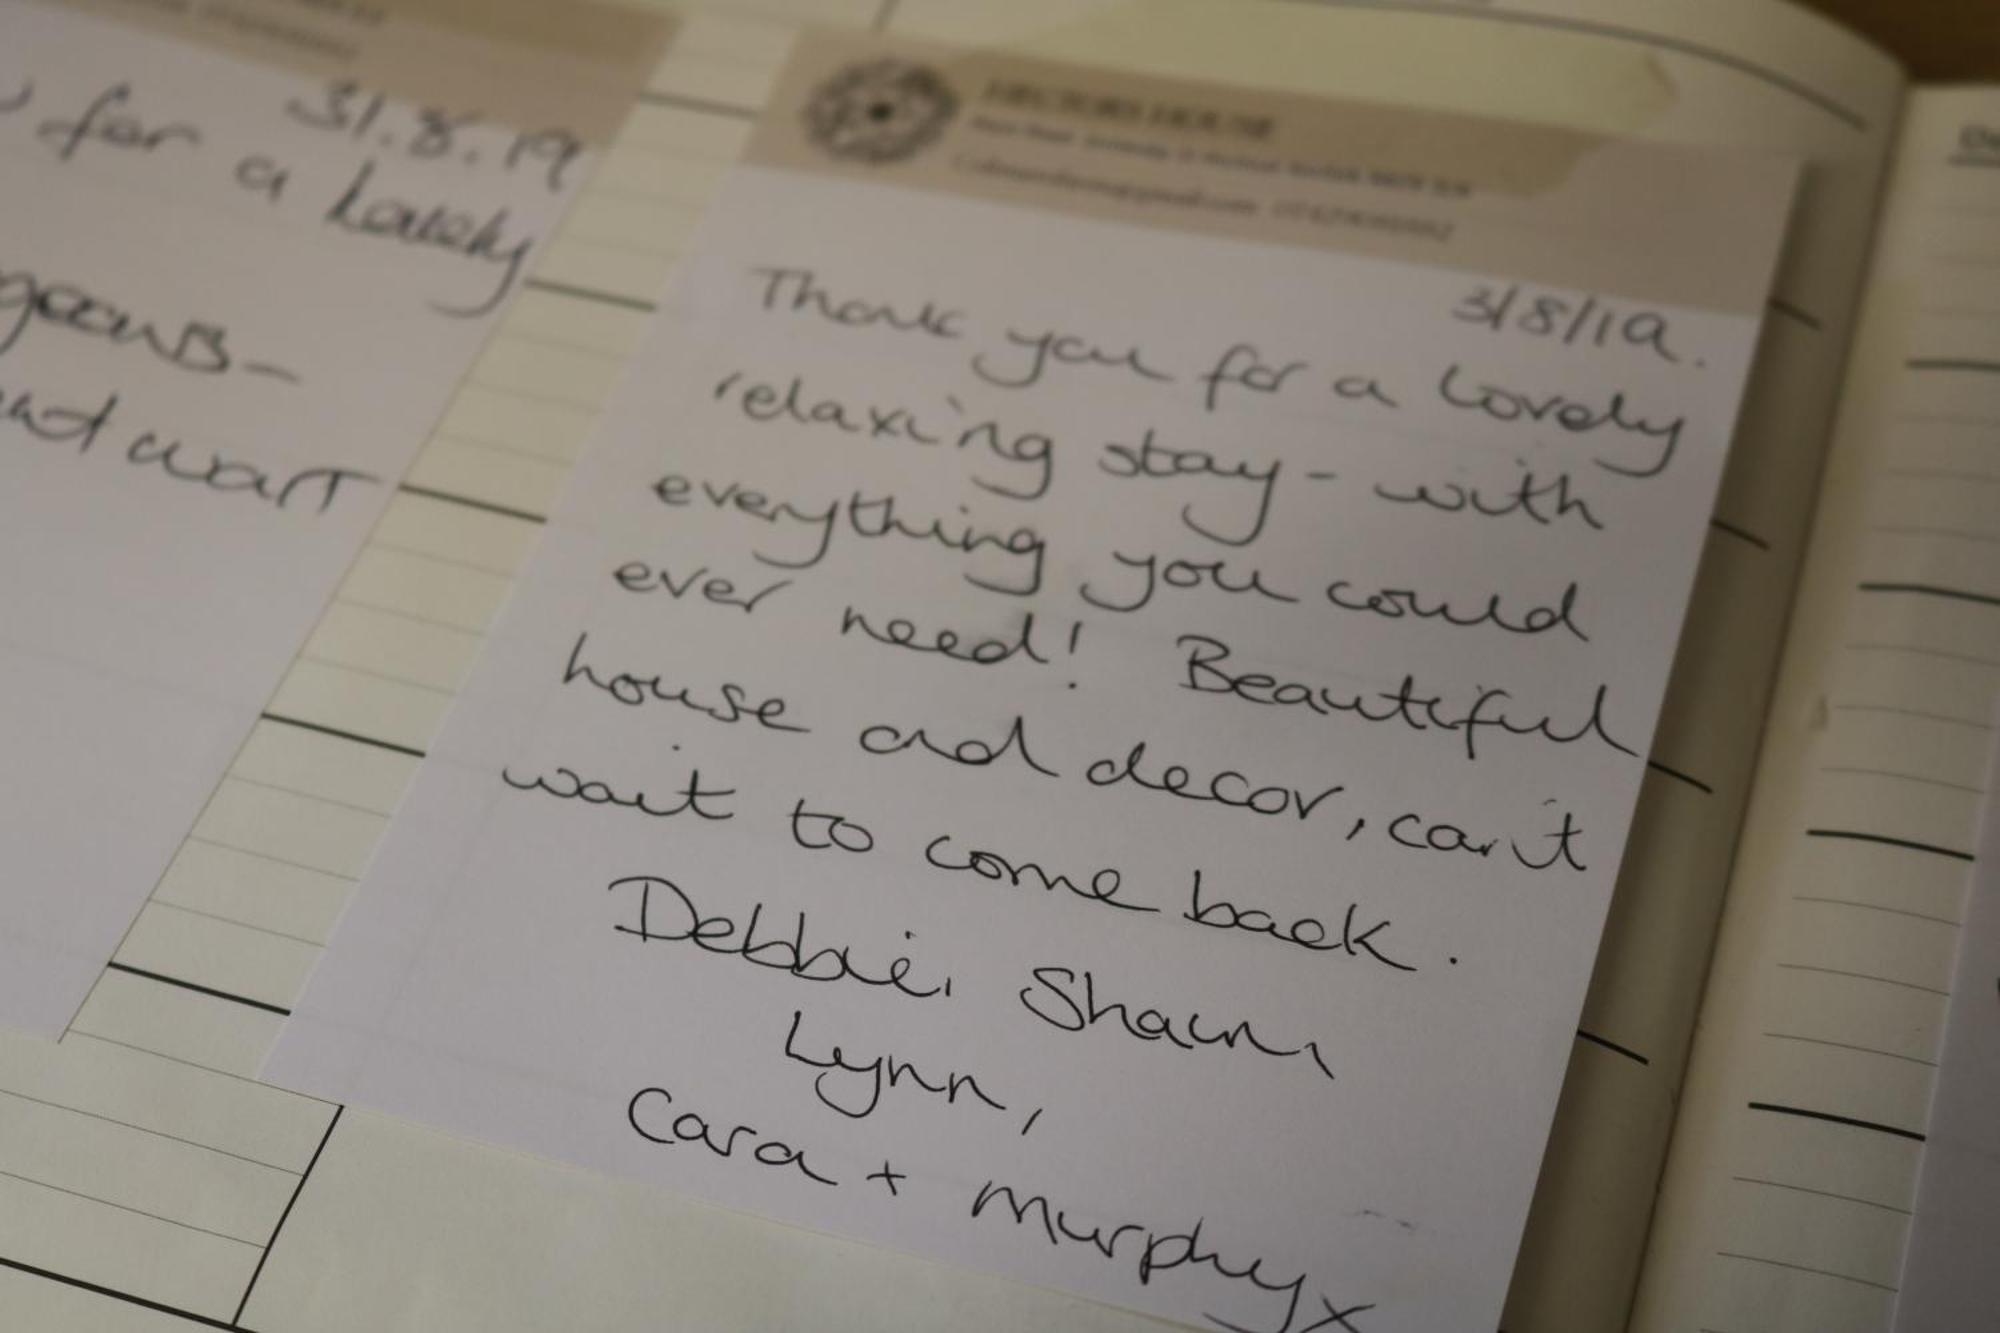 31.8.19
for a lovely
wait
HECTORS HOUSE
3/8/19.
Thank you for a lovely
relaxing stay - with
everything you could
ever need! Beautiful
house and decor, can't
wait to come back.
Debbie, Shaun
Lynn,
Cara + Murphy x